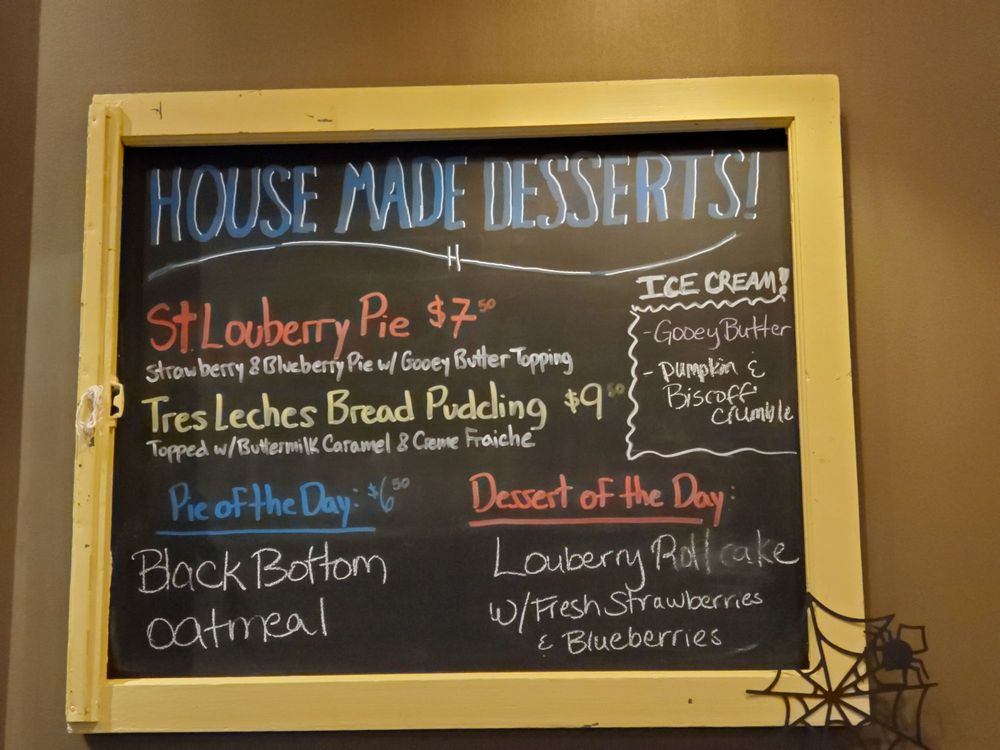 HOUSE MADE DESSERTS!
H
St Louberry Pie $7.50
Strawberry & Blueberry Pie w/ Gooey Butter Topping
Tres Leches Bread Pudding $9.50
Topped w/Buttermilk Caramel & Creme Fraiche
ICE CREAM!
- Gooey Butter
- Pumpkin &
Biscoff
Crumble
Pie of the Day: $6.50
Black Bottom
Oatmeal
Dessert of the Day:
Louberry Roll cake
w/Fresh Strawberries
& Blueberries